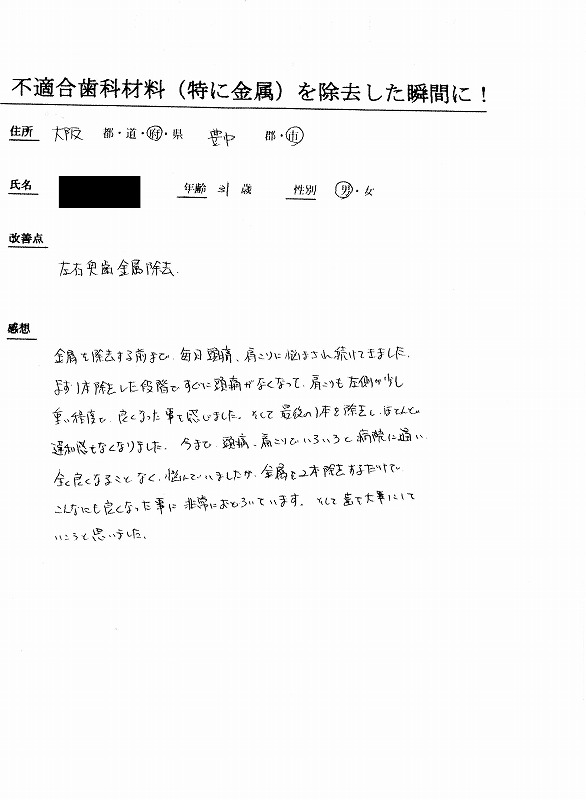 不適合歯科材料（特に金属）を除去した瞬間に！
住所 大阪 都・道・府・県 豊中 郡・市
氏名 年齢 31 歳 性別 男・女
改善点
左右奥歯金属除去.
感想
金属を除去する前まで、毎日頭痛、肩こりに悩まされ続けてきました.
まず1本除去した段階ですぐに頭痛がなくなって、肩こりも左側が少し
重い程度で、良くなった事を感じました。そして最後の1本を除去し、ほとんど
違和感もなくなりました. 今まで、頭痛、肩こりでいろいろと病院に通い.
全く良くなることなく、悩んでいましたが、金属を2本除去するだけで
こんなにも良くなった事に非常におどろいています. そして歯を大事にして
いこうと思いました.